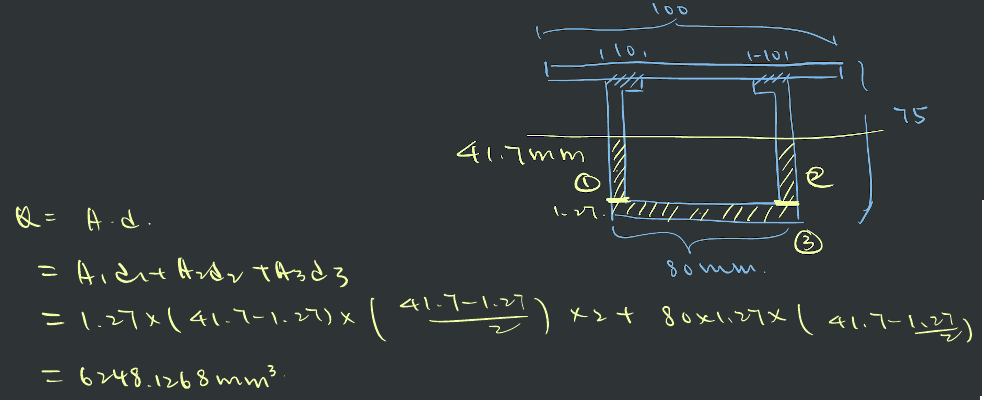 100
110,
1-101
75
41.7mm
①
②
1.27.
③
80mm.
Q = A·d.
= A₁d₁ + A₂d₂ + A₃d₃
= 1.27×(41.7-1.27)×(41.7-1.27/2)×2 + 80×1.27×(41.7-1.27/2)
= 6248.1268mm³.